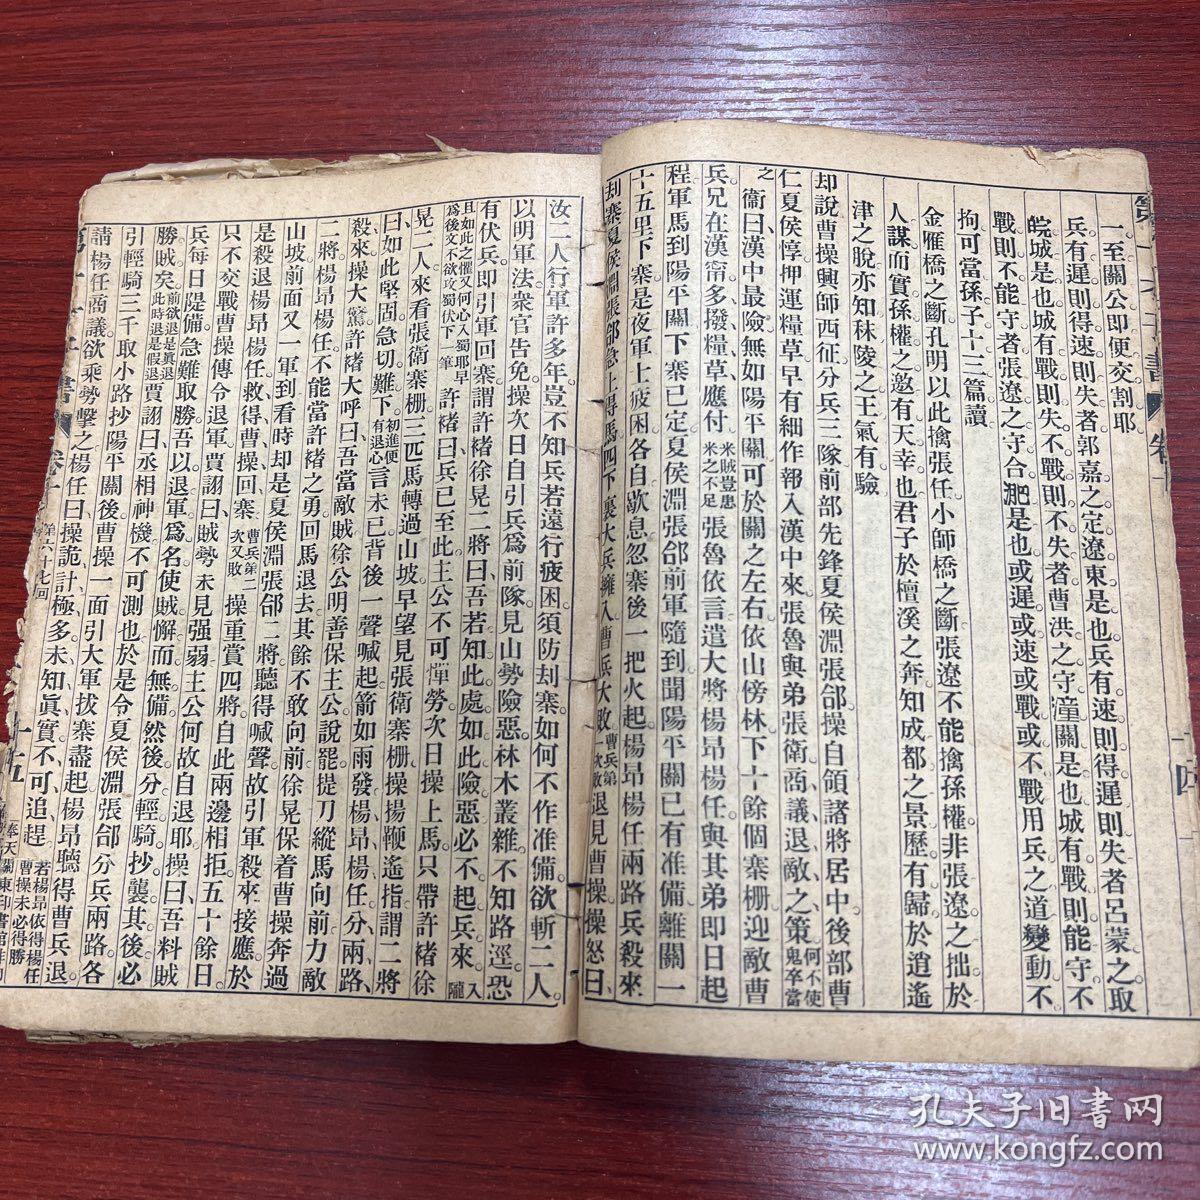 一至關公即便交割耶
兵有遲則得速則失者郭嘉之定遼東是也兵有速則得遲則失者呂蒙之取
皖城是也城有戰則失不戰則不失者曹洪之守潼關是也城有戰則能守不
戰則不能守者張遼之守合淝是也或遲或速或戰或不戰用兵之道變動不
拘可當孫子十三篇讀
金雁橋之斷孔明以此擒張任小師橋之斷張遼不能擒孫權非張遼之拙於
人謀而實孫權之邀有天幸也君子於檀溪之奔知成都之景歷有歸於逍遙
津之脫亦知秣陵之王氣有驗
却說曹操興師西征分兵三隊前部先鋒夏侯淵張郃操自領諸將居中後部曹
仁夏侯惇押運糧草早有細作報入漢中來張魯與弟張衛商議退敵之策何不使鬼卒當
之衛曰漢中最險無如陽平關可於關之左右依山傍林下十餘個寨柵迎敵曹
兵兄在漢甯多撥糧草應付米賊豈患米之不足張魯依言遣大將楊昂楊任與其弟即日起
程軍馬到陽平關下寨已定夏侯淵張郃前軍隨到聞陽平關已有准備離關一
十五里下寨是夜軍士疲困各自歇息忽寨後一把火起楊昂楊任兩路兵殺來
刦寨夏侯淵張郃急上得馬四下裏大兵擁入曹兵大敗曹兵第一次敗退見曹操操怒曰
汝二人行軍許多年豈不知兵若遠行疲困須防刦寨如何不作准備欲斬二人
以明軍法衆官告免操次日自引兵爲前隊見山勢險惡林木叢雜不知路逕恐
有伏兵即引軍回寨謂許褚徐晃二將曰吾若知此處如此險惡必不起兵來入隴
且如此之懼又何心入蜀耶早爲後文不欲攻蜀伏下一筆許褚曰兵已至此主公不可憚勞次日操上馬只帶許褚徐
晃二人來看張衛寨柵三匹馬轉過山坡早望見張衛寨柵操揚鞭遙指謂二將
曰如此堅固急切難下初進便有退心言未已背後一聲喊起箭如雨發楊昂楊任分兩路
殺來操大驚許褚大呼曰吾當敵賊徐公明善保主公說罷提刀縱馬向前力敵
二將楊昂楊任不能當許褚之勇回馬退去其餘不敢向前徐晃保着曹操奔過
山坡前面又一軍到看時却是夏侯淵張郃二將聽得喊聲故引軍殺來接應於
是殺退楊昂楊任救得曹操回寨曹兵第二次又敗操重賞四將自此兩邊相拒五十餘日
只不交戰曹操傳令退軍賈詡曰賊勢未見强弱主公何故自退耶操曰吾料賊
兵每日隄備急難取勝吾以退軍爲名使賊懈而無備然後分輕騎抄襲其後必
勝賊矣前欲退是眞退此時退是假退賈詡曰丞相神機不可測也於是令夏侯淵張郃分兵兩路各
引輕騎三千取小路抄陽平關後曹操一面引大軍拔寨盡起楊昂聽得曹兵退
請楊任商議欲乘勢擊之楊任曰操詭計極多未知眞實不可追趕若楊昂依得楊任曹操未必得勝
第六十七回
十五
十四
孔夫子旧书网
www.kongfz.com